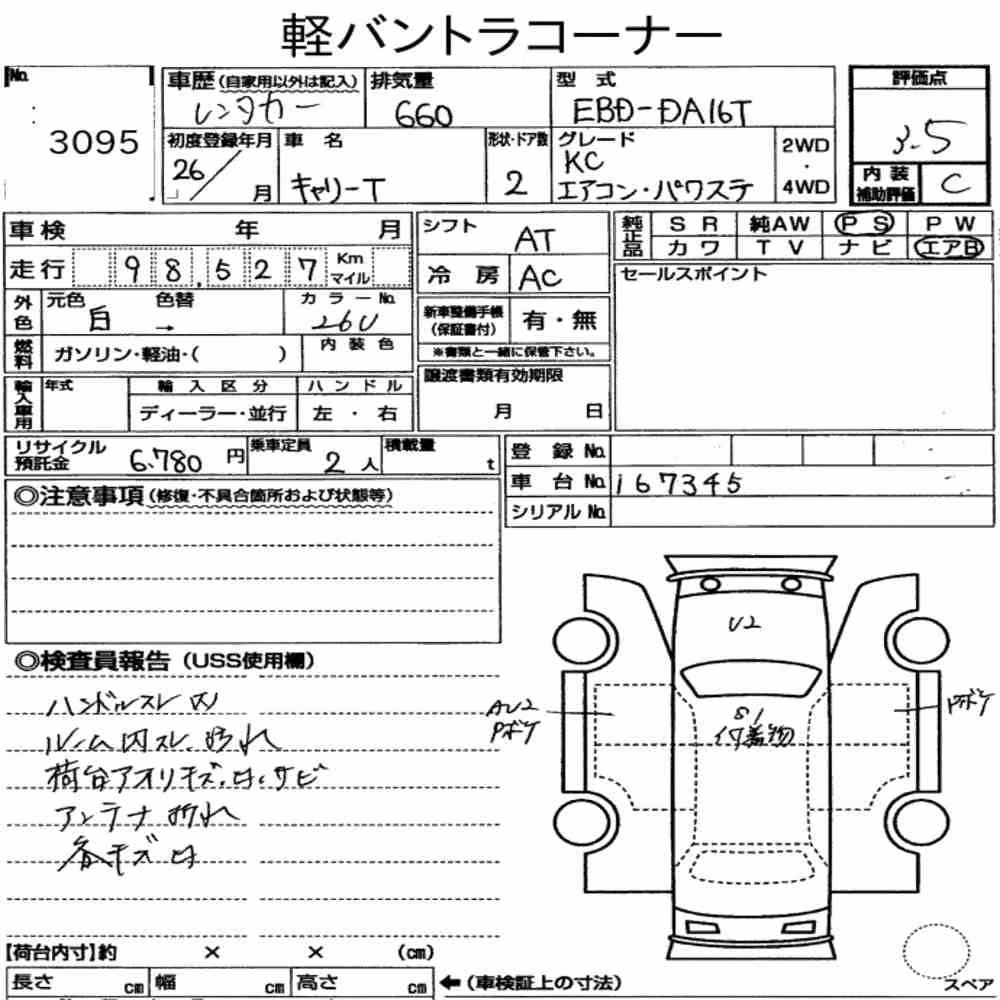 軽バントラコーナー
No. 3095
車歴(自家用以外は記入) 排気量 型 式 評価点
レンタカー 660 EBD-DA16T 3.5
初度登録年月 車 名 形状・ドア数 グレード 2WD・4WD
26/ 月 キャリーT 2 KC エアコン・パワステ
内装補助評価 C
車検 年 月
走行 98,527 Km マイル
シフト AT
冷 房 AC
純正品 S R 純AW P S P W
カ ワ T V ナ ビ エアB
セールスポイント
外色 元色 色替 カ ラ ー No.
白 → 26U
新車整備手帳(保証書付) 有・無
※書類と一緒に保管下さい。
燃料 ガソリン・軽油・( ) 内 装 色
輸入車用 年式 輸 入 区 分 ハ ン ド ル
ディーラー・並行 左 ・ 右
譲渡書類有効期限
月 日
リサイクル預託金 6.780 円 乗車定員 2 人 積載量 t
登 録 No.
車 台 No. 167345
シリアル No.
◎注意事項(修復・不具合箇所および状態等)
◎検査員報告(USS使用欄)
ハンドルスレ
ルーム内スレ
荷台アオリキズ サビ
アンテナ
各キズ
U2
AU2
Pボケ
S1
付着物
Pボケ
【荷台内寸】約 × × (cm)
長さ cm 幅 cm 高さ cm ←(車検証上の寸法)
スペア